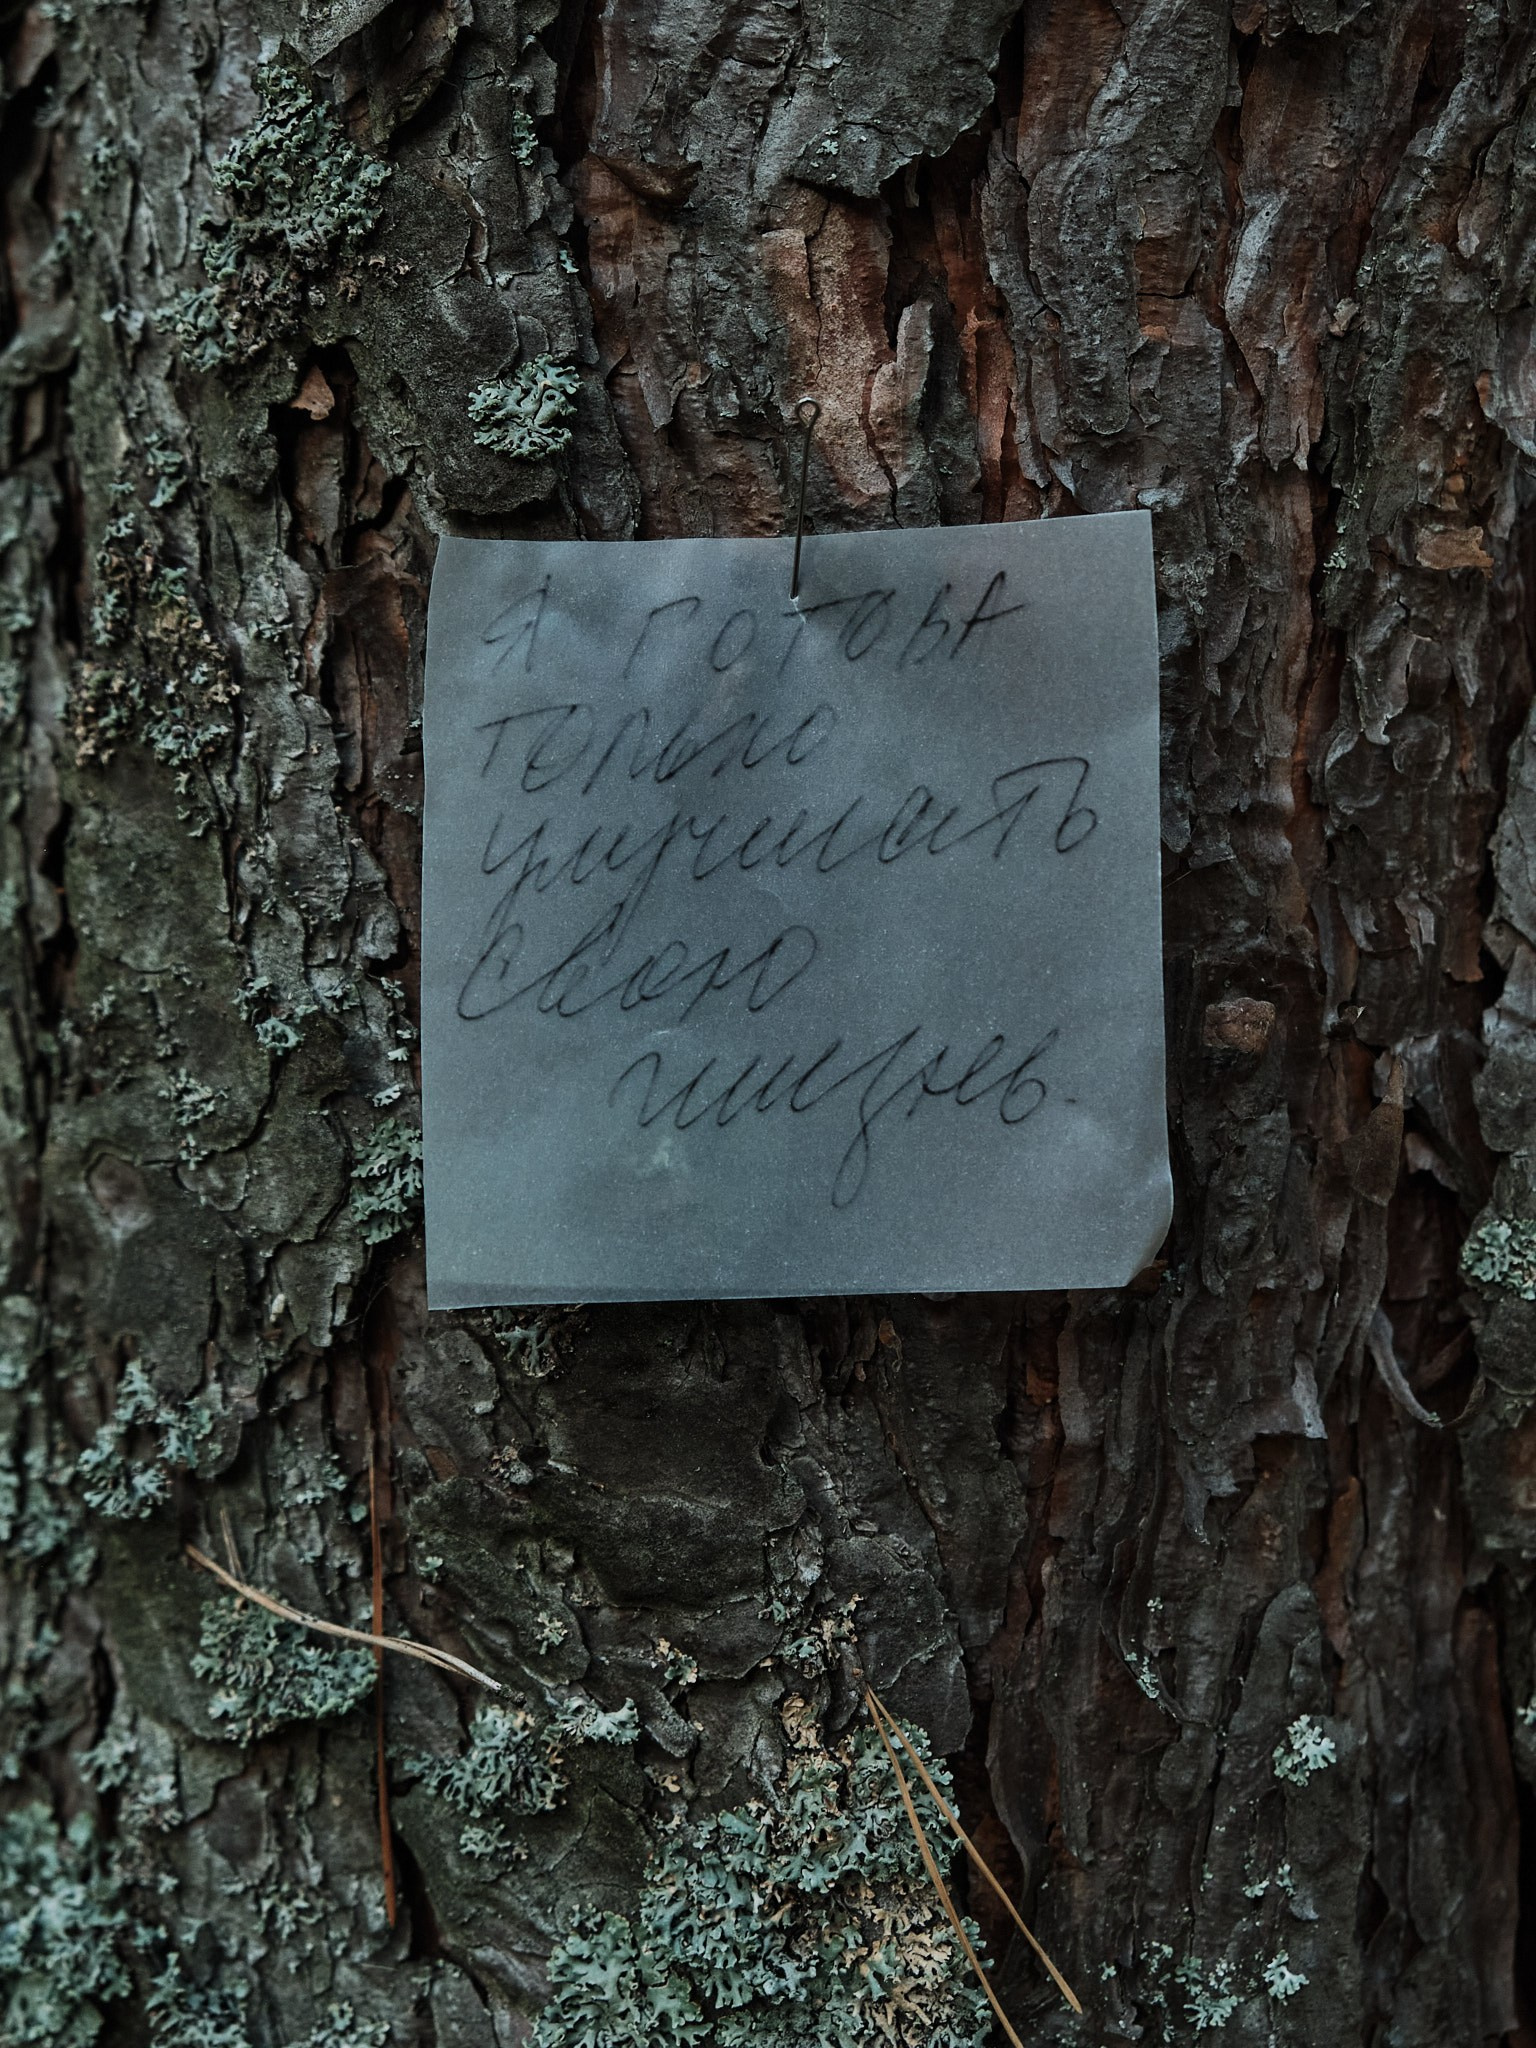 Я готова
только
улучшать
свою
жизнь.